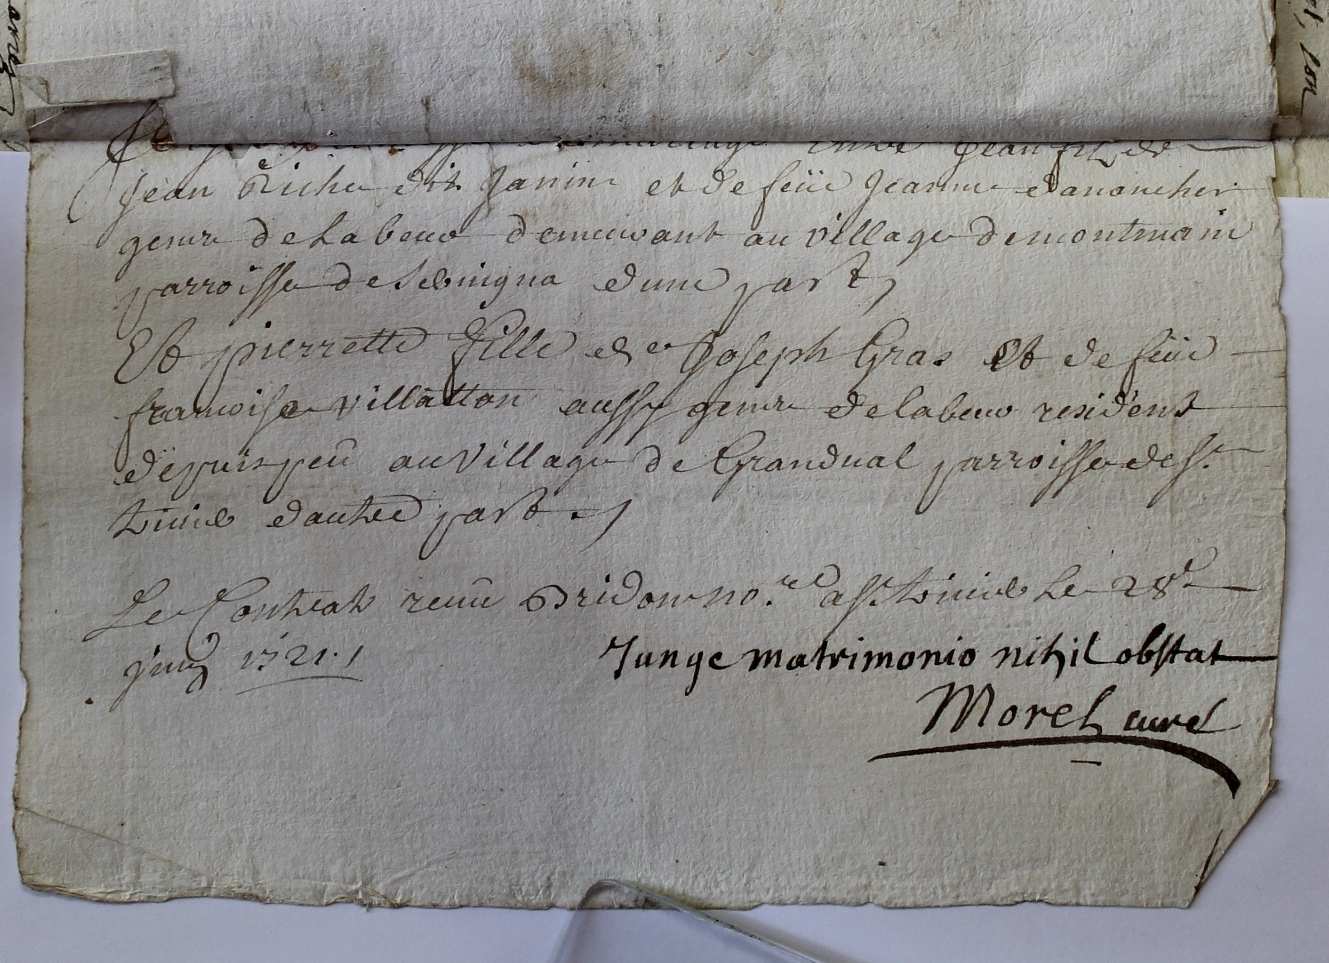 mariage entre Jean fils de
Jean Riche dit Janin et de feüe Jeanne danoncher
gens de labeur demeurant au village de montmain
parroisse de Sevigna d'une part,
Et pierrette fille de Joseph Gras et de feüe
francoise villatton aussy gens de labeur residents
depuis peu au village de Granduál parroisse de St.
trivie d'autre part.
Le Contrat receu Bridon no.re a St. trivie le 28e
1721.
Junge matrimonio nihil obstat
Morel curé